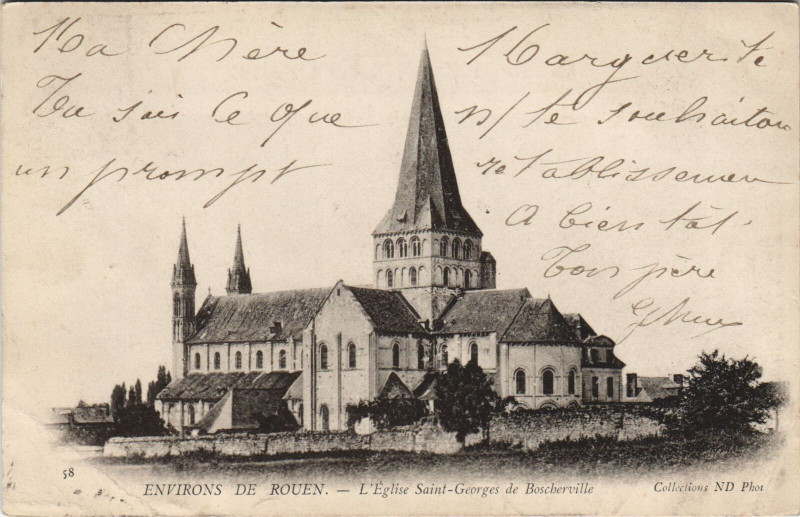 Ma Chère Marguerite
Tu sais Ce que n/ te souhaitons
un prompt rétablissement
A bientôt.
Ton père
58
ENVIRONS DE ROUEN. — L'Église Saint-Georges de Boscherville
Collections ND Phot